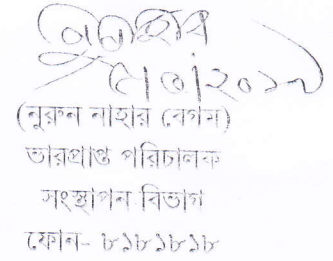 ৫|৩|২০১৯
(নুরুন নাহার বেগম)
ভারপ্রাপ্ত পরিচালক
সংস্থাপন বিভাগ
ফোন- ৮১৮১৮১৮